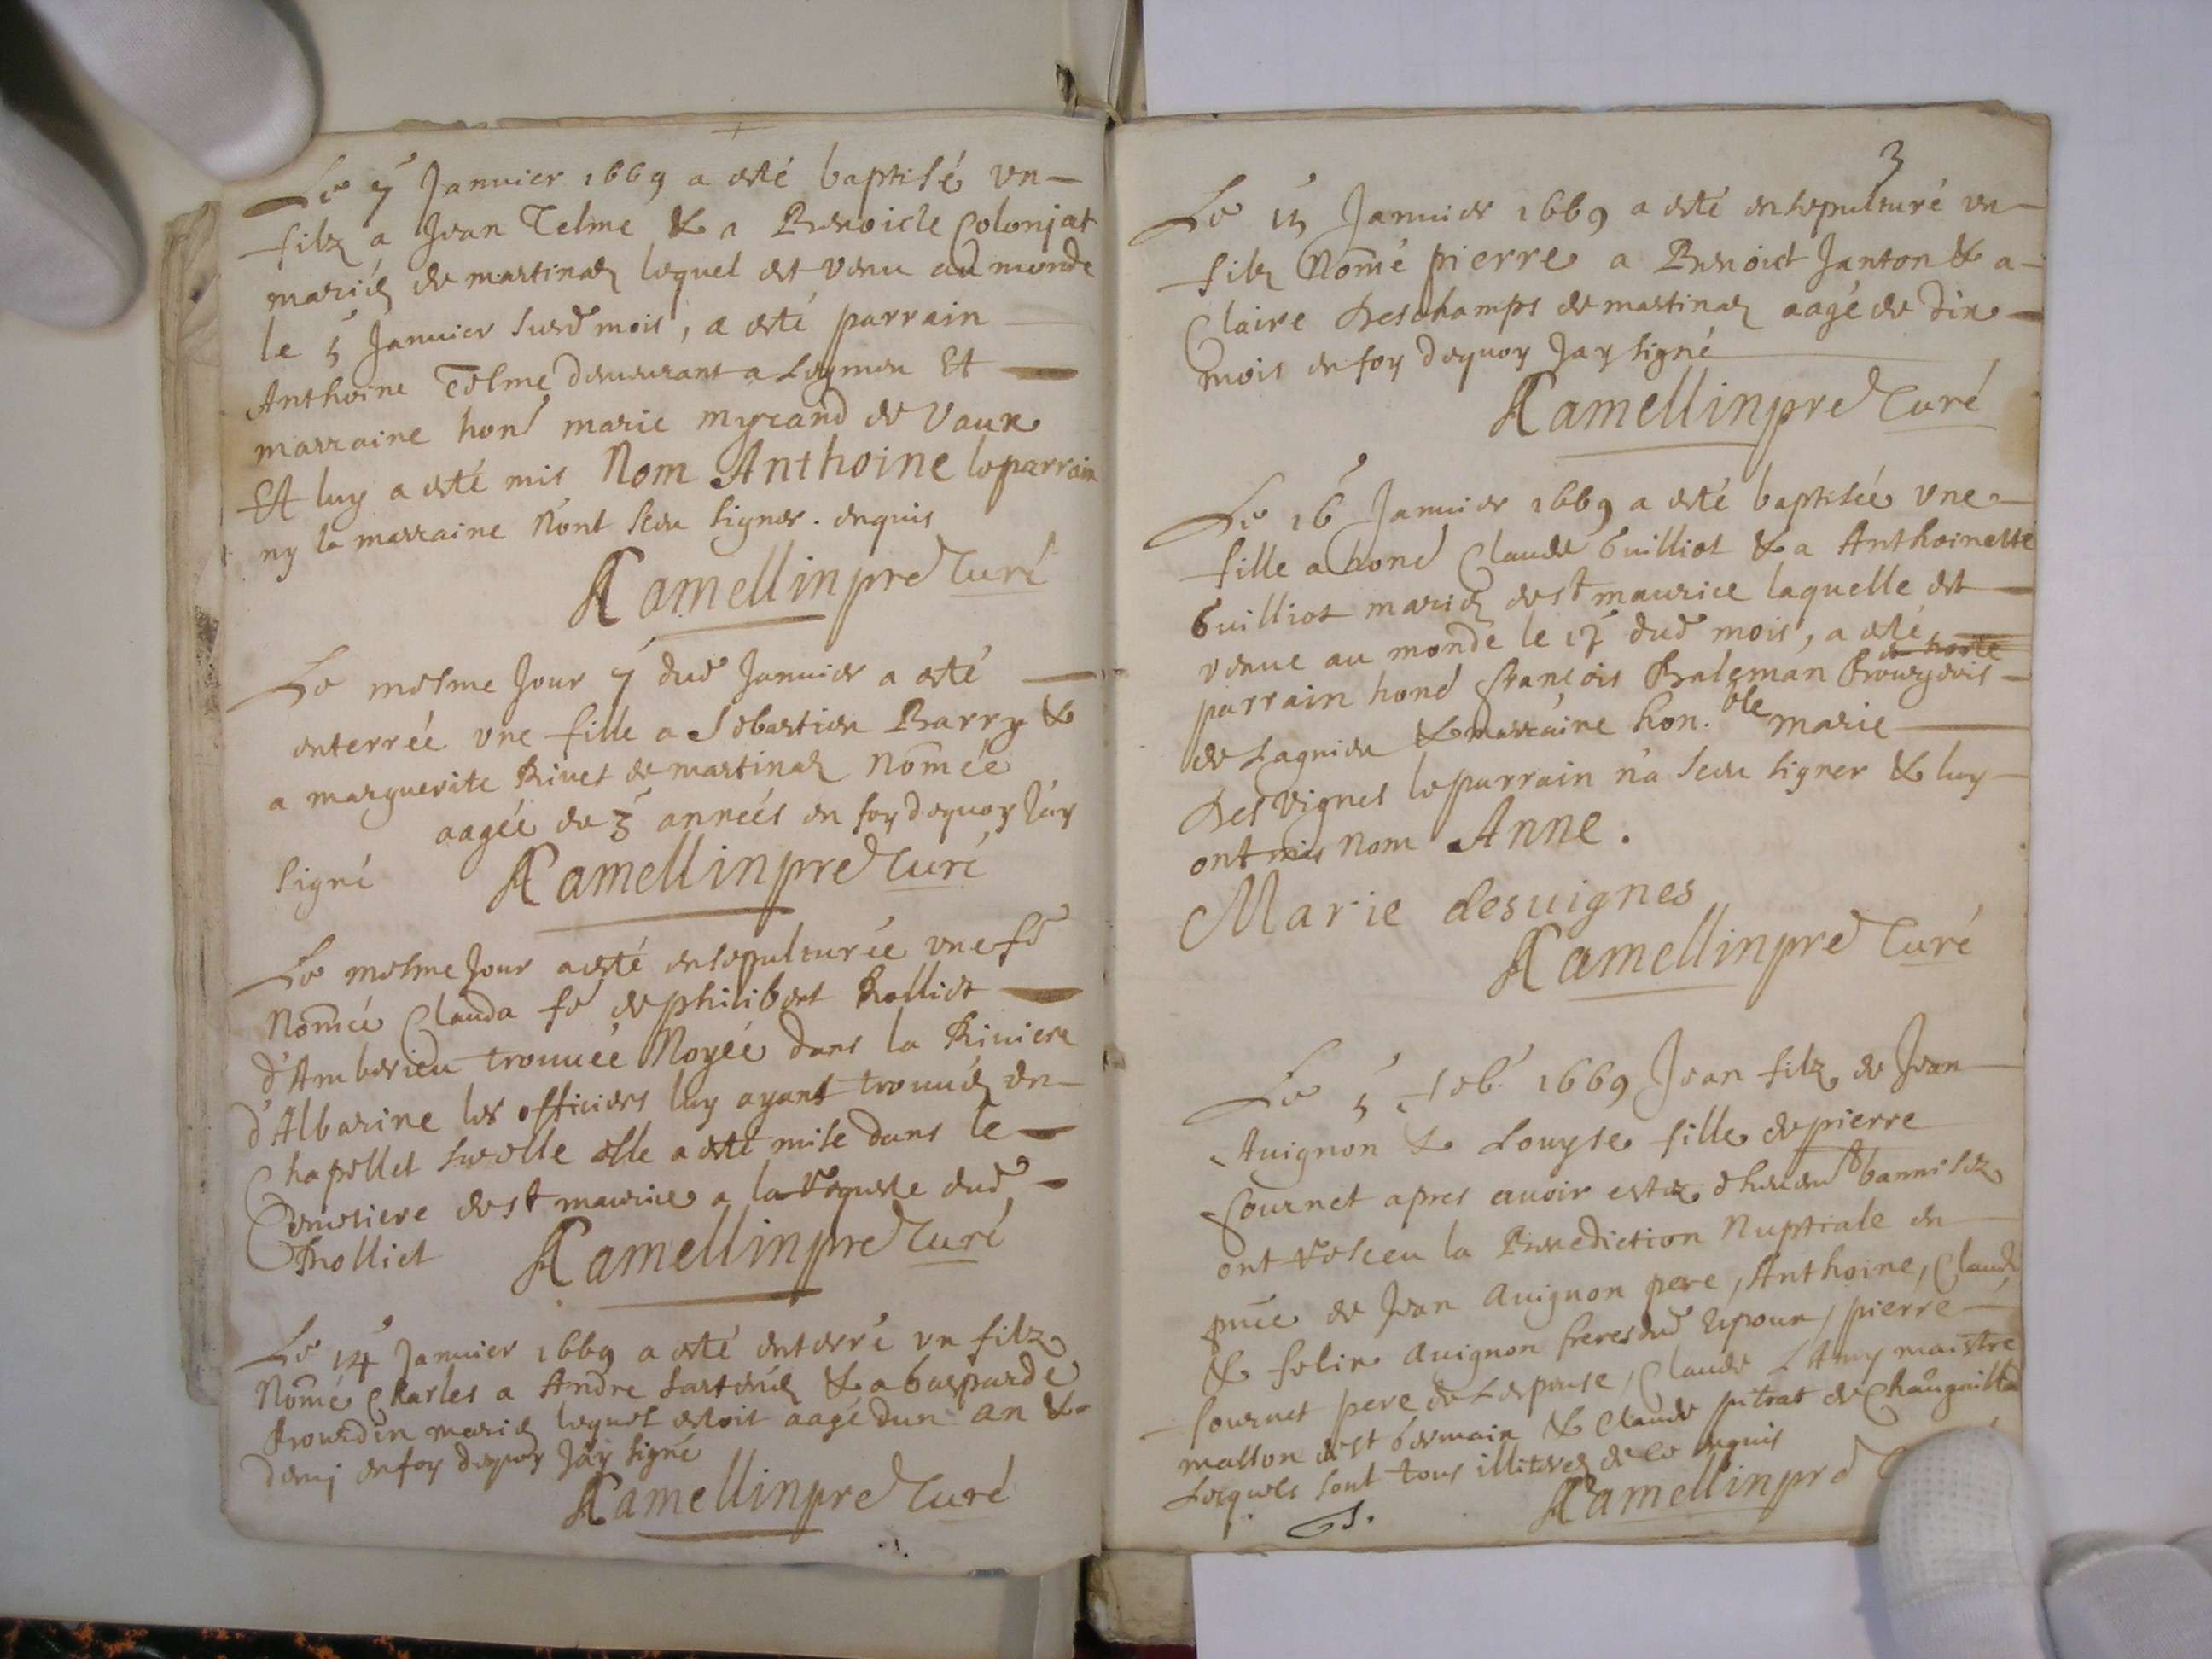 Le 7 Januier 1669 a esté baptisé vn
filz a Jean Telme & a Benoicte Colonjat
mariés de martinaz lequel est venu au monde
le 5 Januier susd mois, a esté parrain
Anthoine Telme demeurant a Leymen Et
marraine hond marie myrand de Vaux
Et luy a esté mis Nom Anthoine le parrain
ny la marraine N'ont sceu signer. enquis
Ramellin pre Curé
Le mesme Jour 7 dud Januier a esté
enterrée vne fille a Sebastien Barry &
a marguerite Riuet de martinaz Nomée
aagée de 3 années en foy dequoy J'ay
signé Ramellin pre Curé
Le mesme Jour a esté ensepulturée vne fe
Nomée Clauda fe de philibert Rolliet
d'Amberieu trouuée Noyée dans la Riuiere
d'Albarine les officiers luy ayant trouués en
Chapellet sur elle elle a esté mise dans le
Cemetiere de st maurice a la Requeste dud
Rolliet Ramellin pre Curé
Le 14 Januier 1669 a esté enterré vn filz
Nomé Charles a Andre & a Gasparde
Bourdin mariés lequel estoit aagé dun an &
demj en foy dequoy J'ay signé
Ramellin pre Curé
3
Le 15 Januier 1669 a esté ensepulturé vn
filz Nomé pierre a Benoict Janton & a
Claire Deschamps de martinaz aagé de dix
mois en foy dequoy Jay signé
Ramellin pre Curé
Le 16 Januier 1669 a esté baptisée vne
fille a hond Claude Guilliot & a Anthoinette
Guilliot mariés de st maurice laquelle est
venue au monde le dud mois, a esté
parrain hond françois Baleman Bourgeois
de Lagnieu & marraine hon.ble marie
Des Vignes le parrain n'a sceu signer & luy
ont mis Nom Anne.
Marie desuignes
Ramellin pre Curé
Le 5 feb. 1669 Jean filz de Jean
Auignon & Louyse fille de pierre
Sournet apres auoir estez bannisez
ont Resceu la Benediction Nuptiale en
pnce de Jean Auignon pere, Anthoine, Claude
& felix Auignon freres dud Epoux, pierre
Sournet pere de Lespouse, Claude L'Amy maistre
masson de st Germain & Claude pitrat de
Lesquels sont tous illiterez de ce enquis
Ramellin pre